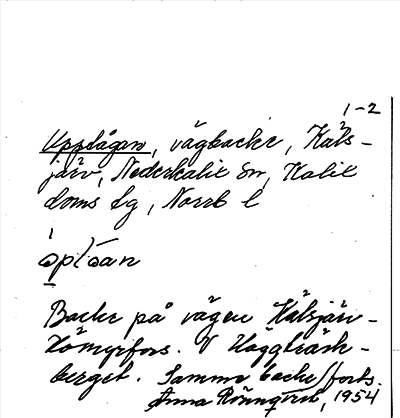 1-2
Upplågan, vägbacke, Käls-
järv, Nederkalix sn, Kalix
doms lg, Norrb l
Backe på vägen Kälsjärv-
Kömyrfors. V Häggträsk-
berget. Samma backe / forts.
Anna Rönnqvist, 1954